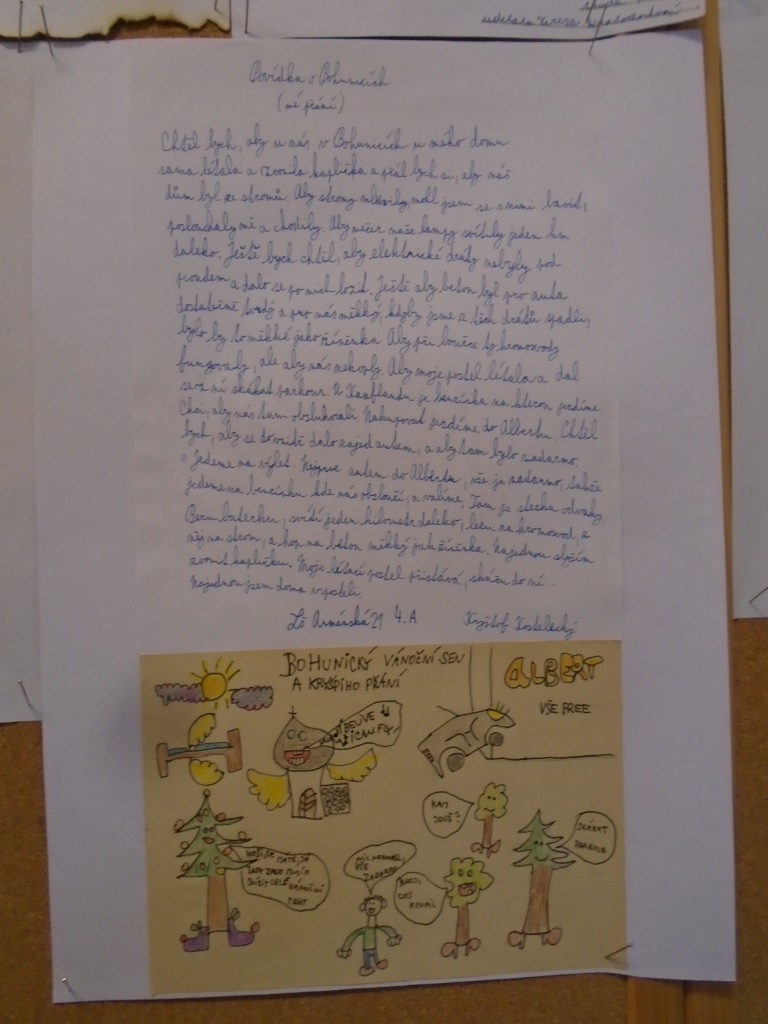 Povídka o Bohunicích
(mé přání)
Chtěl bych, aby u nás v Bohunicích u mého domu
sama létala a zvonila kaplička a přál bych si, aby náš
dům byl ze stromů. Aby stromy mluvily, mohl jsem se s nimi bavit,
poslouchaly mě a chodily. Aby večer naše lampy svítily jeden km
daleko. Ještě bych chtěl, aby elektrické dráty nebyly pod
proudem a dalo se po nich lozit. Ještě aby beton byl pro auta
dostatečně tvrdý a pro nás měkký, kdyby jsme z těch drátů spadli,
bylo by to měkké jako žíněnka. Aby při bouřce ty hromosvody
fungovaly, ale aby nás nekoply. Aby moje postel létala a dal
se z ní skákat parkour. U Kauflandu je benzínka na kterou jezdíme.
Chci, aby nás tam obsluhovali. Nakupovat jezdíme do Albertu. Chtěl
bych, aby se dovnitř dalo zajed autem, a aby tam bylo zadarmo.
" Jedeme na výlet. Nejprve autem do Albertu, vše je zadarmo, takže
jedeme na benzínku kde nás obslouží, a valíme. Tam je stezka odvahy.
Beru baterku, svítí jeden kilometr daleko, lezu na hromosvod, z
něj na strom, a hop na beton měkký jak žíněnka. Najednou slyším
zvonit kapličku. Moje létací postel přistává, skáču do ní...
Najednou jsem doma v posteli.
ZŠ Arménská 21 4. A Kryštof Kostelecký
BOHUNICKÝ VÁNOČNÍ SEN
A KRYŠIHO PŘÁNÍ
ALBERT
VŠE FREE
BELIVE
I CAN FLY!
KAM
JDEŠ?
SKÁKAT
PARKOUR
HOŠI, SE MÁTE, JÁ
TADY ZASE MUSÍM
SVÍTIT CELÉ
VÁNOČNÍ
TRHY
VŠE
ZADARMO
COS
KOUPIL